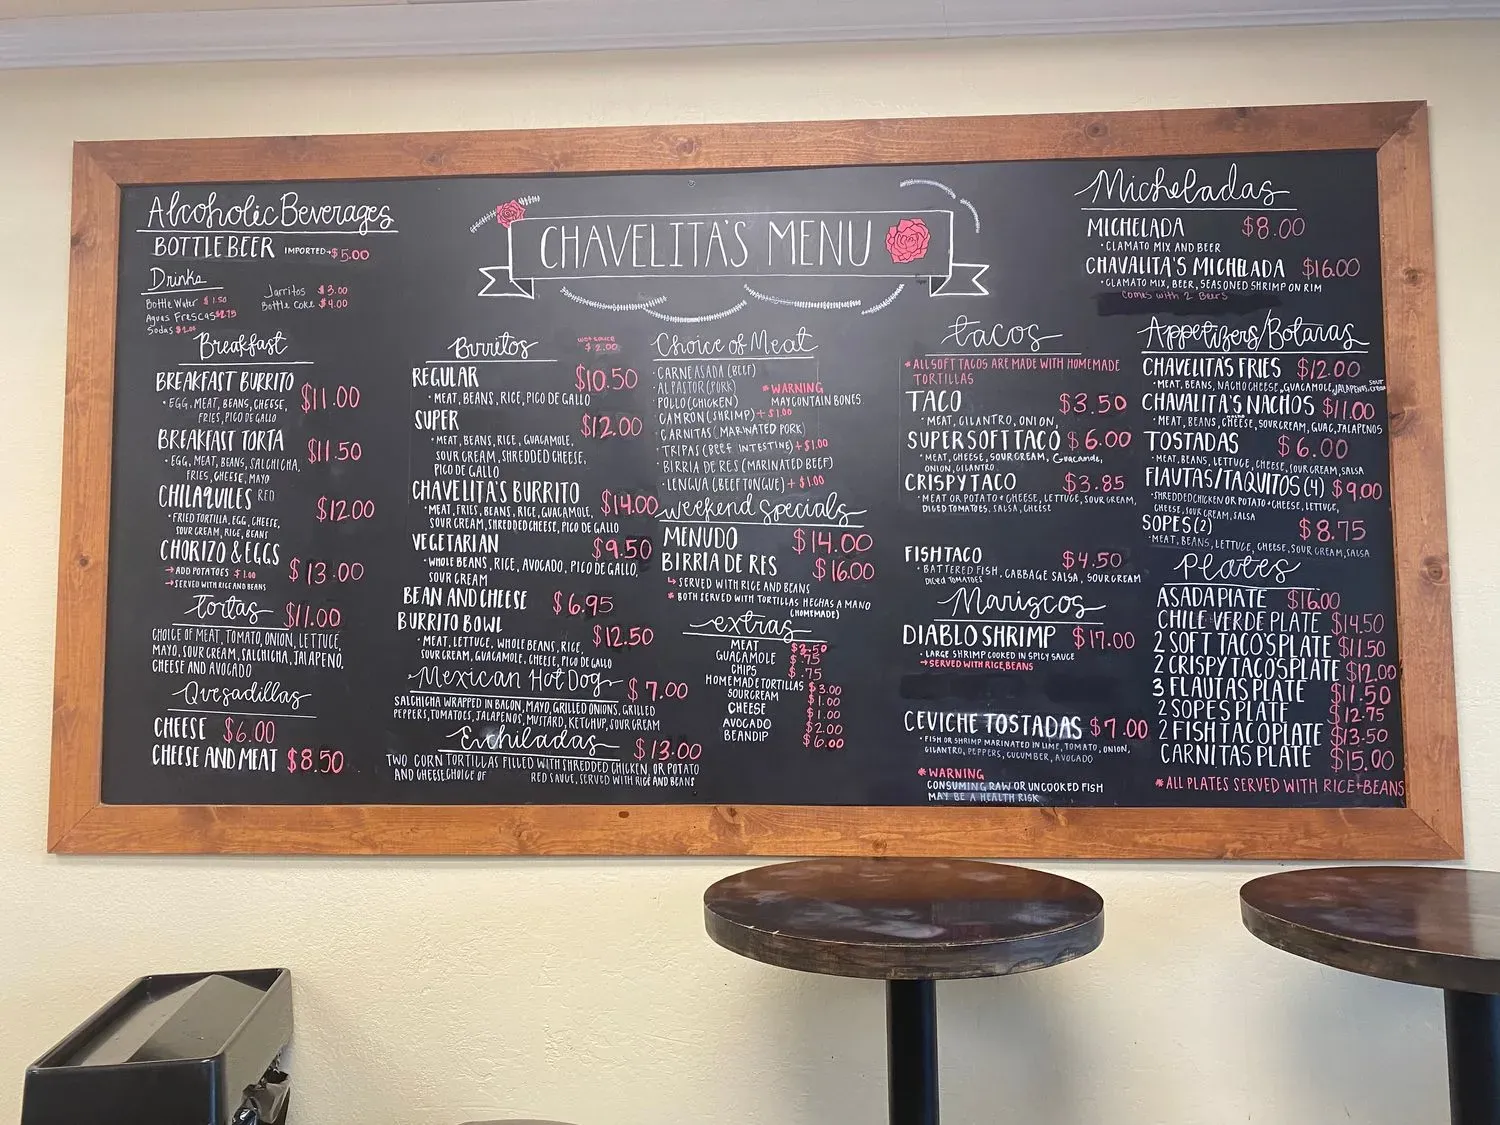 Alcoholic Beverages
BOTTLE BEER IMPORTED→$5.00
Drinks
Bottle Water $1.50
Aguas Frescas $2.75
Sodas $2.00
Jarritos $3.00
Bottle Coke $4.00
Breakfast
BREAKFAST BURRITO $11.00
•EGG, MEAT, BEANS, CHEESE,
FRIES, PICO DE GALLO
BREAKFAST TORTA $11.50
•EGG, MEAT, BEANS, SALCHICHA,
FRIES, CHEESE, MAYO
CHILAQUILES RED $12.00
•FRIED TORTILLA, EGG, CHEESE,
SOUR CREAM, RICE, BEANS
CHORIZO & EGGS $13.00
→ADD POTATOES $1.00
→SERVED WITH RICE AND BEANS
tortas $11.00
CHOICE OF MEAT, TOMATO, ONION, LETTUCE,
MAYO, SOUR CREAM, SALCHICHA, JALAPENO,
CHEESE AND AVOCADO
Quesadillas
CHEESE $6.00
CHEESE AND MEAT $8.50
CHAVELITA'S MENU
Burritos
WET SAUCE
$2.00
REGULAR $10.50
•MEAT, BEANS, RICE, PICO DE GALLO
SUPER $12.00
•MEAT, BEANS, RICE, GUACAMOLE,
SOUR CREAM, SHREDDED CHEESE,
PICO DE GALLO
CHAVELITA'S BURRITO $14.00
•MEAT, FRIES, BEANS, RICE, GUACAMOLE,
SOUR CREAM, SHREDDED CHEESE, PICO DE GALLO
VEGETARIAN $9.50
•WHOLE BEANS, RICE, AVOCADO, PICO DE GALLO,
SOUR CREAM
BEAN AND CHEESE $6.95
BURRITO BOWL $12.50
•MEAT, LETTUCE, WHOLE BEANS, RICE,
SOUR CREAM, GUACAMOLE, CHEESE, PICO DE GALLO
Mexican Hot Dog $7.00
SALCHICHA WRAPPED IN BACON, MAYO, GRILLED ONIONS, GRILLED
PEPPERS, TOMATOES, JALAPENOS, MUSTARD, KETCHUP, SOUR CREAM
Enchiladas $13.00
TWO CORN TORTILLAS FILLED WITH SHREDDED CHICKEN, OR POTATO
AND CHEESE CHOICE OF RED SAUCE, SERVED WITH RICE AND BEANS
Choice of Meat
•CARNE ASADA (BEEF)
•AL PASTOR (PORK)
•POLLO (CHICKEN)
•CAMRON (SHRIMP) +$1.00
•CARNITAS (MARINATED PORK)
•TRIPAS (BEEF INTESTINE) +$1.00
•BIRRIA DE RES (MARINATED BEEF)
•LENGUA (BEEF TONGUE) +$1.00
*WARNING
MAY CONTAIN BONES
weekend specials
MENUDO $14.00
BIRRIA DE RES $16.00
↳SERVED WITH RICE AND BEANS
*BOTH SERVED WITH TORTILLAS HECHAS A MANO
(HOMEMADE)
extras
MEAT $3.50
GUACAMOLE $.75
CHIPS $.75
HOMEMADE TORTILLAS $3.00
SOUR CREAM $1.00
CHEESE $1.00
AVOCADO $2.00
BEAN DIP $6.00
tacos
*ALL SOFT TACOS ARE MADE WITH HOMEMADE
TORTILLAS
TACO $3.50
•MEAT, CILANTRO, ONION,
SUPER SOFT TACO $6.00
•MEAT, CHEESE, SOUR CREAM, Guacamole,
ONION, CILANTRO
CRISPY TACO $3.85
•MEAT OR POTATO + CHEESE, LETTUCE, SOUR CREAM,
DICED TOMATOES, SALSA, CHEESE
FISH TACO $4.50
•BATTERED FISH, CABBAGE SALSA, SOUR CREAM
DICED TOMATOES
Mariscos
DIABLO SHRIMP $17.00
•LARGE SHRIMP COOKED IN SPICY SAUCE
→SERVED WITH RICE, BEANS
CEVICHE TOSTADAS $7.00
•FISH OR SHRIMP MARINATED IN LIME, TOMATO, ONION,
CILANTRO, PEPPERS, CUCUMBER, AVOCADO
*WARNING
CONSUMING RAW OR UNCOOKED FISH
MAY BE A HEALTH RISK
Micheladas
MICHELADA $8.00
•CLAMATO MIX AND BEER
CHAVALITA'S MICHELADA $16.00
•CLAMATO MIX, BEER, SEASONED SHRIMP ON RIM
Comes with 2 Beers
Appetizers/Botanas
CHAVELITA'S FRIES $12.00
•MEAT, BEANS, NACHO CHEESE, GUACAMOLE, JALAPENOS, SOUR CREAM
CHAVALITA'S NACHOS $11.00
•MEAT, BEANS, NACHO CHEESE, SOUR CREAM, GUAC, JALAPENOS
TOSTADAS $6.00
•MEAT, BEANS, LETTUCE, CHEESE, SOUR CREAM, SALSA
FLAUTAS/TAQUITOS (4) $9.00
•SHREDDED CHICKEN OR POTATO + CHEESE, LETTUCE,
CHEESE, SOUR CREAM, SALSA
SOPES (2) $8.75
•MEAT, BEANS, LETTUCE, CHEESE, SOUR CREAM, SALSA
Plates
ASADA PLATE $16.00
CHILE VERDE PLATE $14.50
2 SOFT TACO'S PLATE $11.50
2 CRISPY TACO'S PLATE $12.00
3 FLAUTAS PLATE $11.50
2 SOPES PLATE $12.75
2 FISH TACO PLATE $13.50
CARNITAS PLATE $15.00
*ALL PLATES SERVED WITH RICE+BEANS